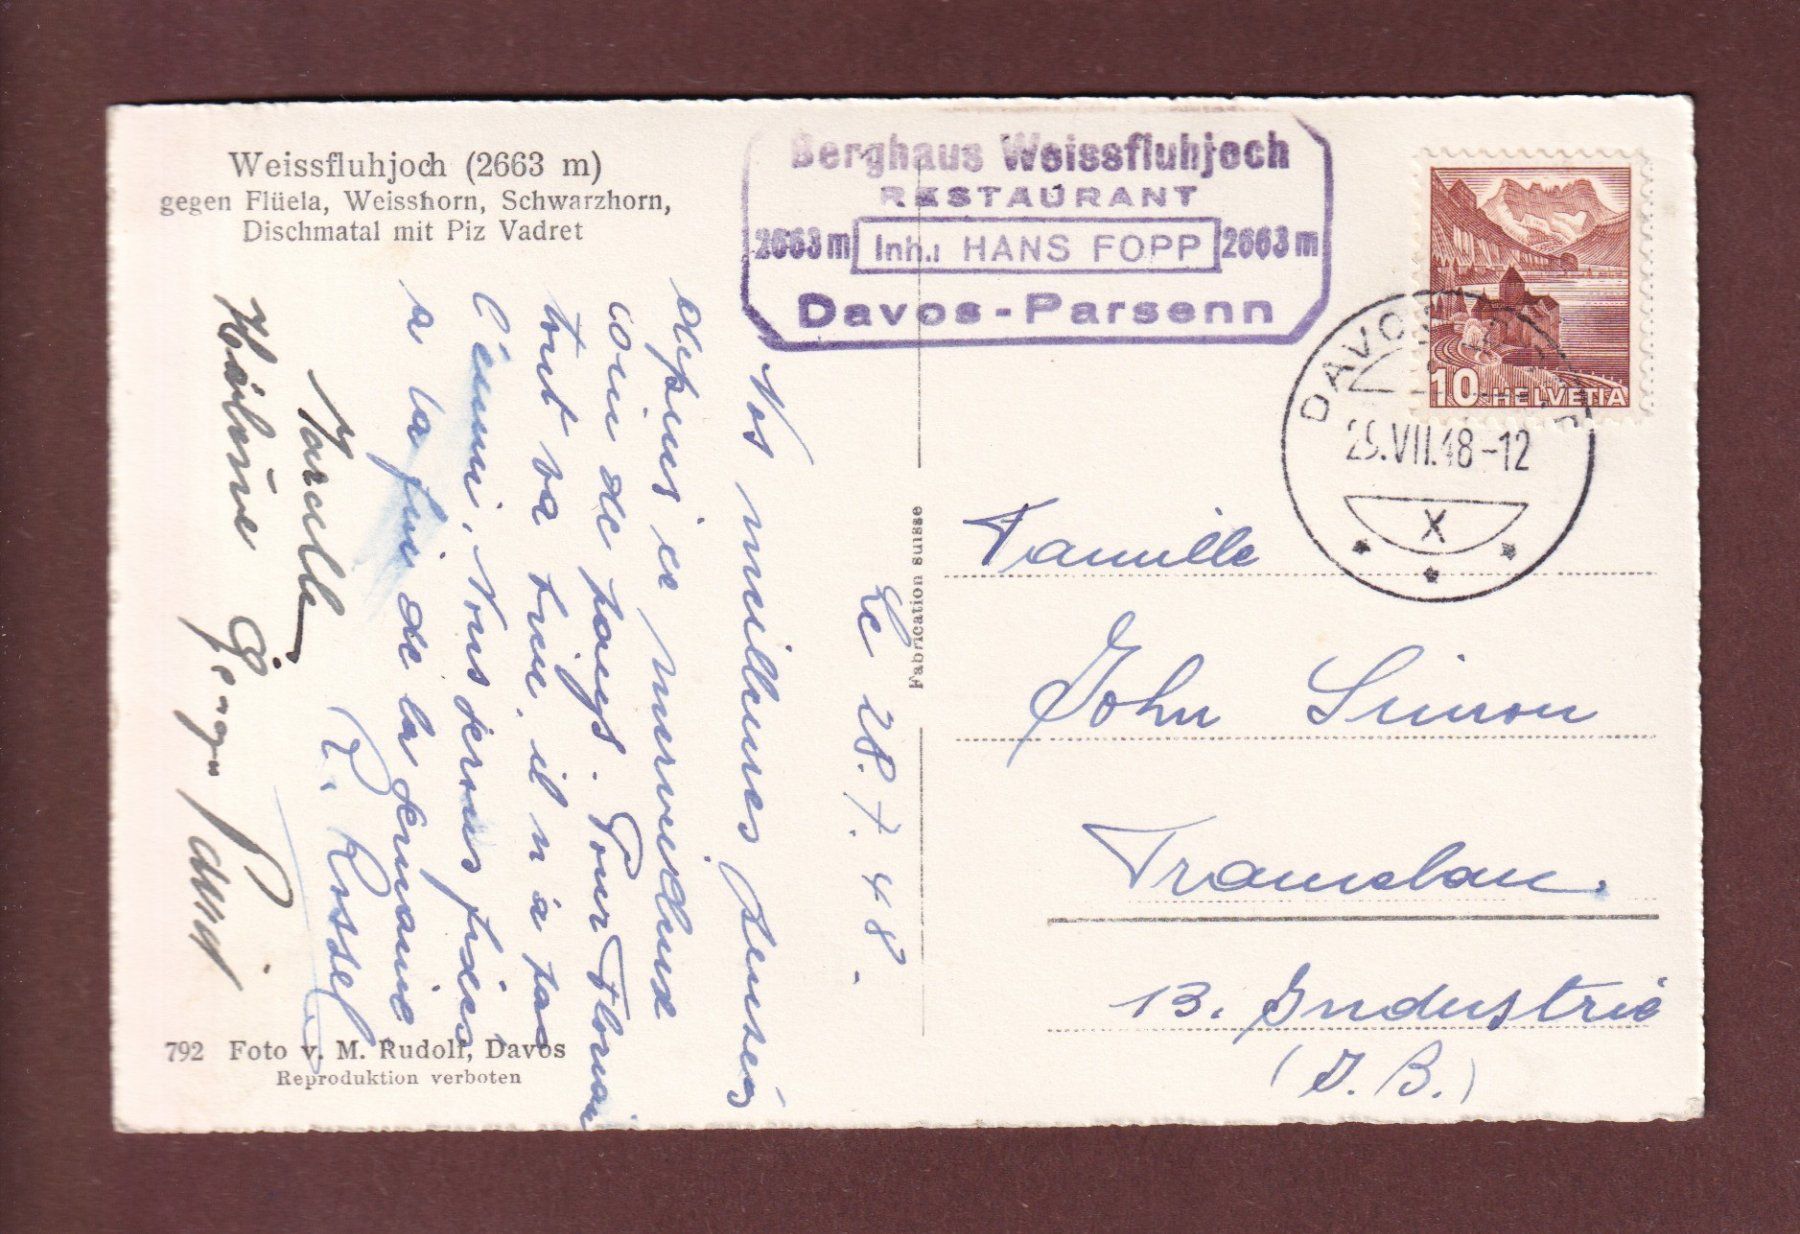 Weissfluhjoch (2663 m)
gegen Flüela, Weisshorn, Schwarzhorn,
Dischmatal mit Piz Vadret
Berghaus Weissfluhjoch
RESTAURANT
2663 m Inh.: HANS FOPP 2663 m
Davos-Parsenn
10 HELVETIA
DAVOS
29.VII.48-12
X
Le 28.7.48.
Vos meilleures pensées
depuis ce merveilleux
coin de pays. Pour Florian
tout va bien, il n'a pas
l'ennui. Nous serons frères
a la fin de la semaine
R. Rossel
Marcelle
Hélène
Fabrication suisse
Famille
John Simon
Tramelan.
13. Industrie
(J. B.)
792 Foto v. M. Rudolf, Davos
Reproduktion verboten